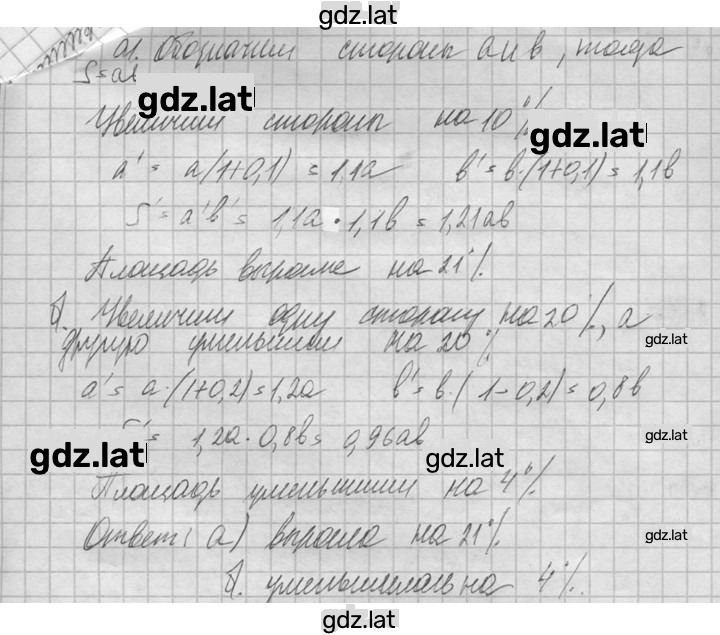 gdz.lat
а. Обозначим стороны a и b, тогда
S = ab
gdz.lat
Увеличим стороны на 10%
gdz.lat
a' = a(1+0,1) = 1,1a b' = b·(1+0,1) = 1,1b
S' = a'b' = 1,1a · 1,1b = 1,21ab
Площадь выросла на 21%.
б. Увеличим одну сторону на 20%, а
другую уменьшим на 20%
gdz.lat
a' = a·(1+0,2) = 1,2a b' = b·(1-0,2) = 0,8b
S' = 1,2a · 0,8b = 0,96ab
gdz.lat
gdz.lat
gdz.lat
Площадь уменьшим на 4%.
Ответ: а) выросла на 21%.
gdz.lat
б. уменьшилась на 4%.
gdz.lat